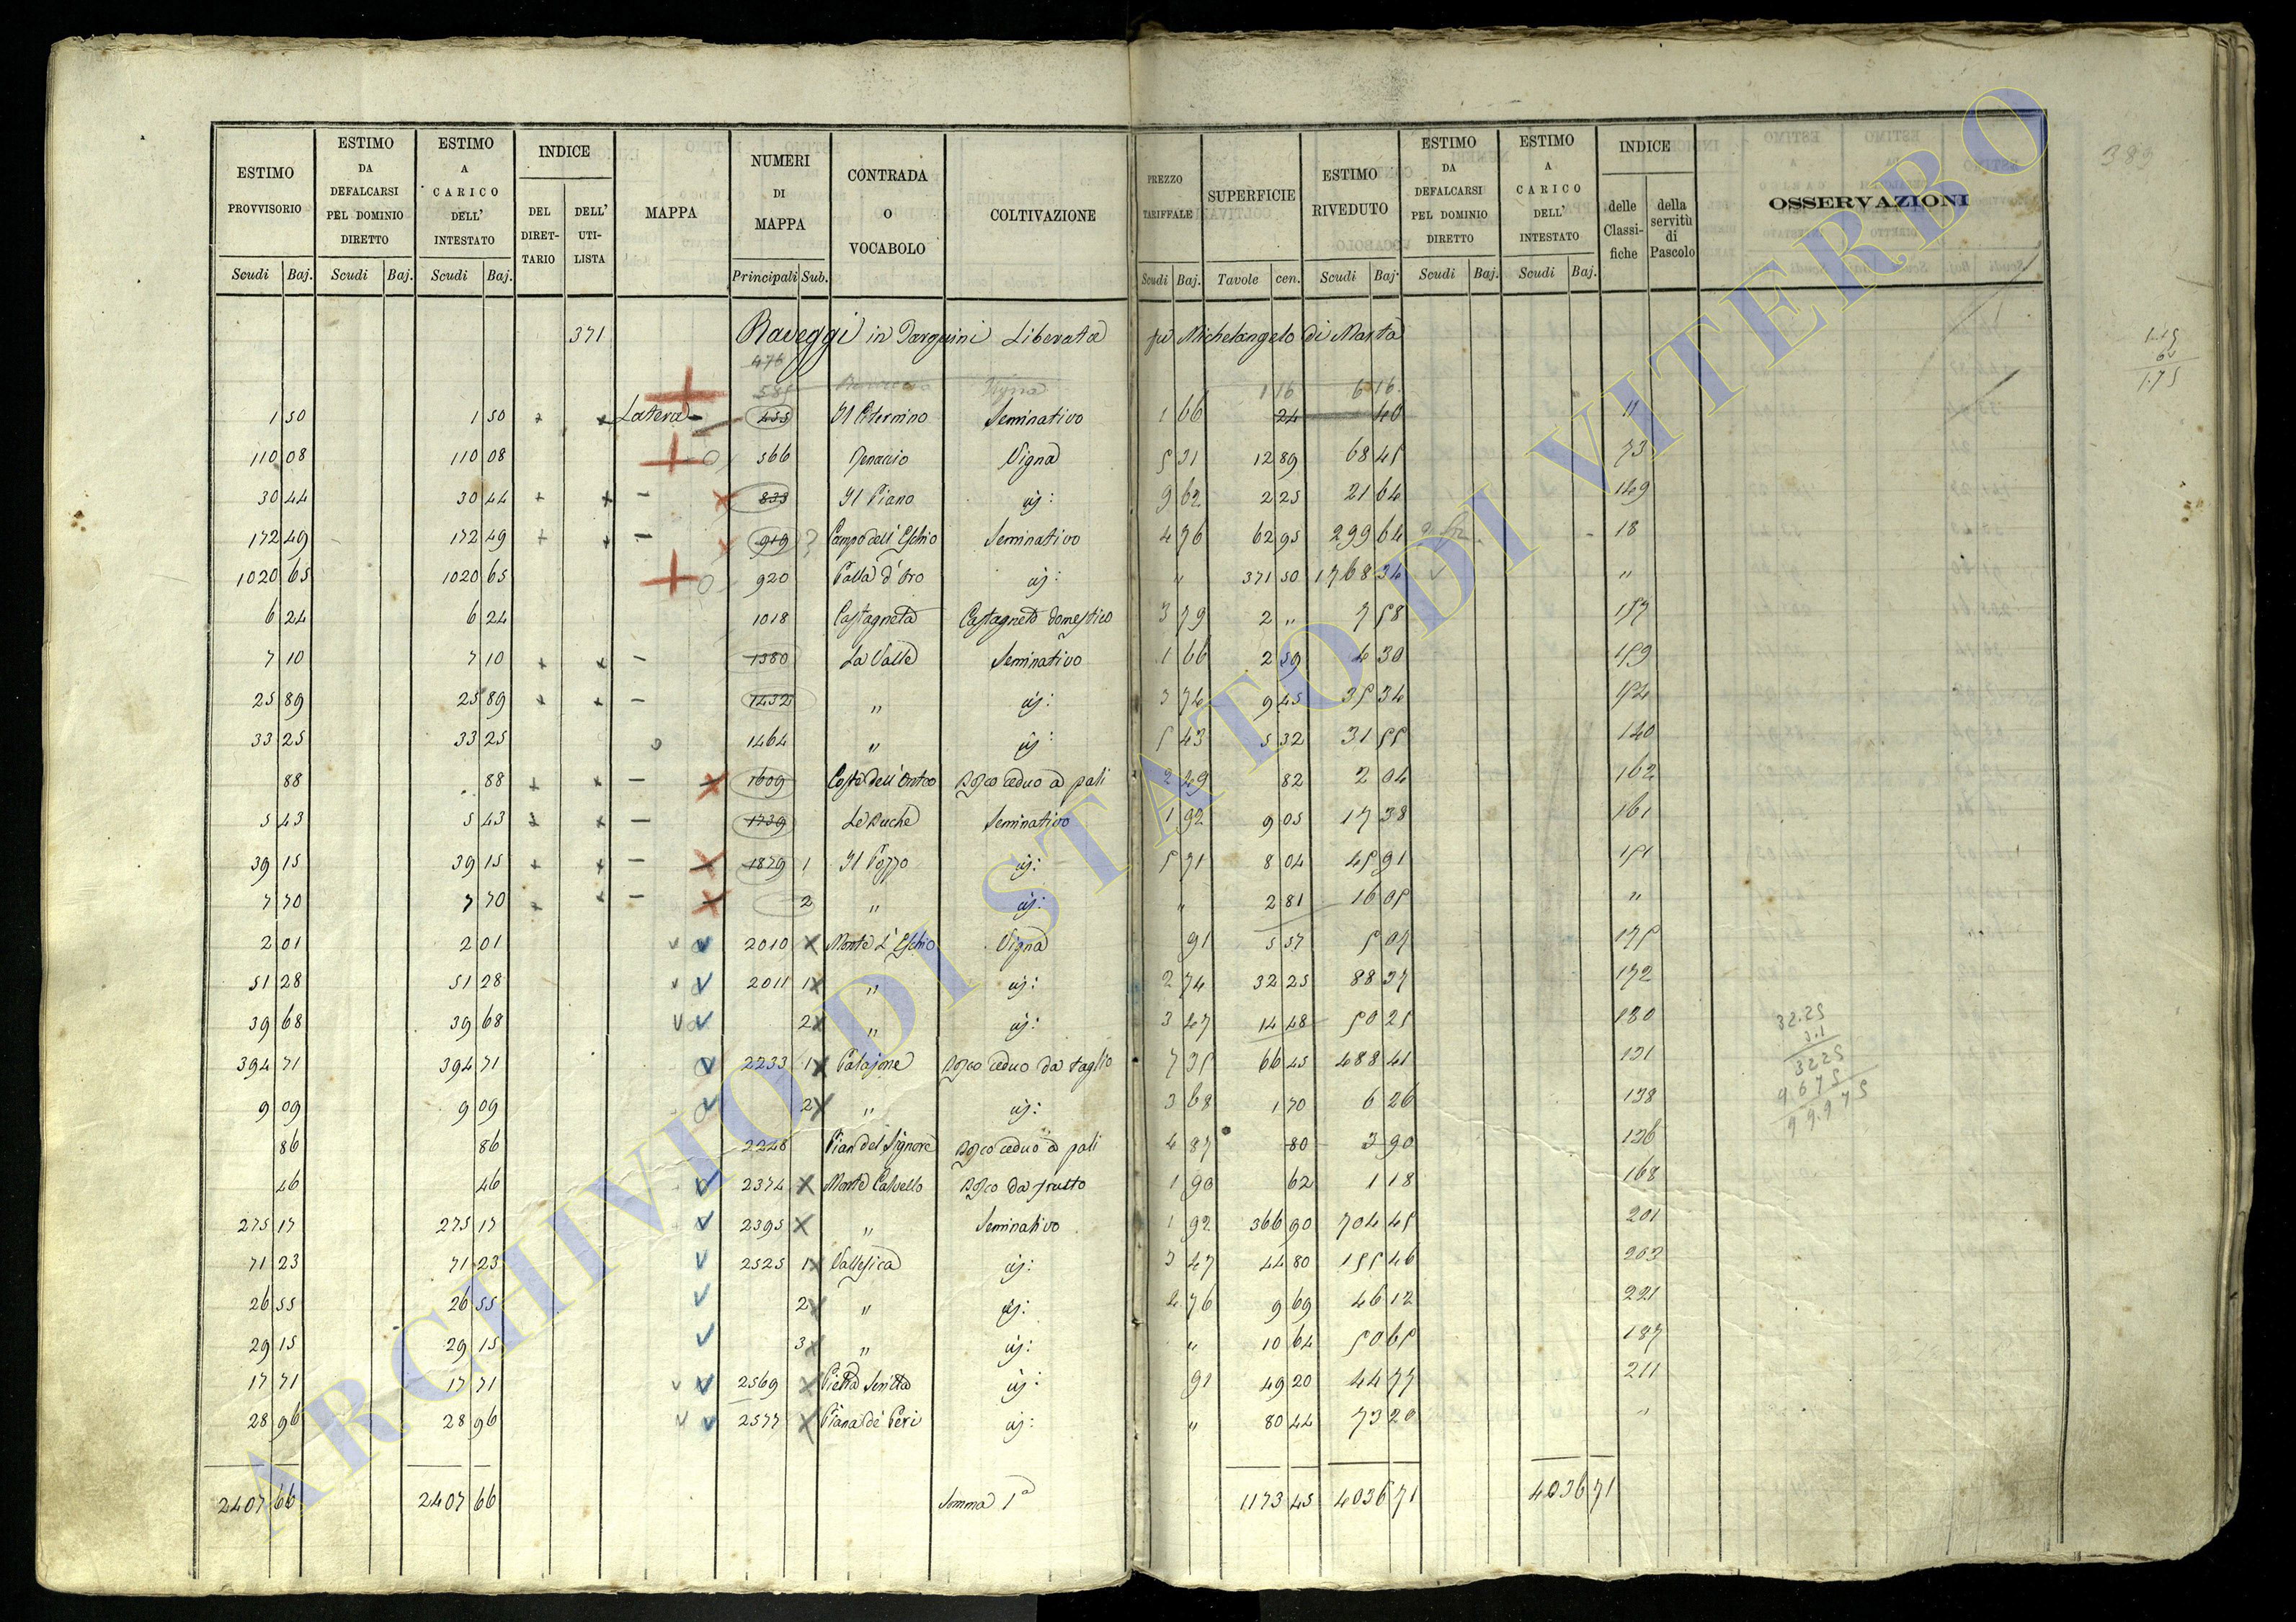 ESTIMO PROVVISORIO Scudi Baj. | ESTIMO DA DEFALCARSI PEL DOMINIO DIRETTO Scudi Baj. | ESTIMO A CARICO DELL' INTESTATO Scudi Baj. | INDICE DEL DIRETTARIO | DELL' UTILISTA | MAPPA | NUMERI DI MAPPA Principali Sub. | CONTRADA O VOCABOLO | COLTIVAZIONE | PREZZO TARIFFALE Scudi Baj. | SUPERFICIE Tavole cen. | ESTIMO RIVEDUTO Scudi Baj. | ESTIMO DA DEFALCARSI PEL DOMINIO DIRETTO Scudi Baj. | ESTIMO A CARICO DELL' INTESTATO Scudi Baj. | INDICE delle Classifiche | della servitù di Pascolo | OSSERVAZIONI
389
371 Raveggi in Tarquini Liberata fu Michelangelo di Marta
476
585 Vigna 1 16 6 16
1 50 1 50 Latera 455 Il Eternino Seminativo 1 66 24 40 11
110 08 110 08 566 Renaccio Vigna 5 31 12 89 68 45 73
30 44 30 44 833 Il Piano id: 9 62 2 25 21 64 149
172 49 172 49 919 ? Campo dell' Eschio Seminativo 4 76 62 95 299 64 18
1020 65 1020 65 920 Palla d'Oro id: " 371 50 1768 34 "
6 24 6 24 1018 Castagneta Castagneto domestico 3 79 2 " 7 58 157
7 10 7 10 1380 La Valle Seminativo 1 66 2 59 4 30 159
25 89 25 89 1432 " id: 3 74 9 45 35 34 154
33 25 33 25 1464 " id: 5 43 5 32 31 55 140
88 88 1609 Costa dell' Bosco ceduo a pali 2 49 82 2 04 162
5 43 5 43 1739 Le Buche Seminativo 1 92 9 05 17 38 161
39 15 39 15 1879 1 Il Pozzo id: 5 71 8 04 45 91 151
7 70 7 70 2 " id: " 2 81 16 05 "
2 01 2 01 2010 Monte L' Eschio Vigna 91 5 57 5 07 175
51 28 51 28 2011 1 " id: 2 74 32 25 88 37 172
39 68 39 68 2 " id: 3 47 14 48 50 25 180
394 71 394 71 2233 1 Palajone Bosco ceduo da taglio 7 35 66 45 488 41 131
9 09 9 09 2 " id: 3 68 1 70 6 26 138
86 86 2248 Pian del Signore Bosco ceduo a pali 4 87 80 3 90 136
46 46 2374 Monte Calvello Bosco da frutto 1 90 62 1 18 168
275 17 275 17 2395 " Seminativo 1 92 366 90 704 45 201
71 23 71 23 2525 1 Vallesica id: 3 47 44 80 155 46 203
26 55 26 55 2 " id: 4 76 9 69 46 12 221
29 15 29 15 3 " id: " 10 64 50 65 187
17 71 17 71 2569 Pietra Scritta id: 91 49 20 44 77 211
28 96 28 96 2577 Piana de' Peri id: " 80 44 73 20 "
2407 66 2407 66 Somma 1a 1173 45 4036 71 4036 71
1.75
32.25
3.1
3225
9675
99.975
ARCHIVIO DI STATO DI VITERBO